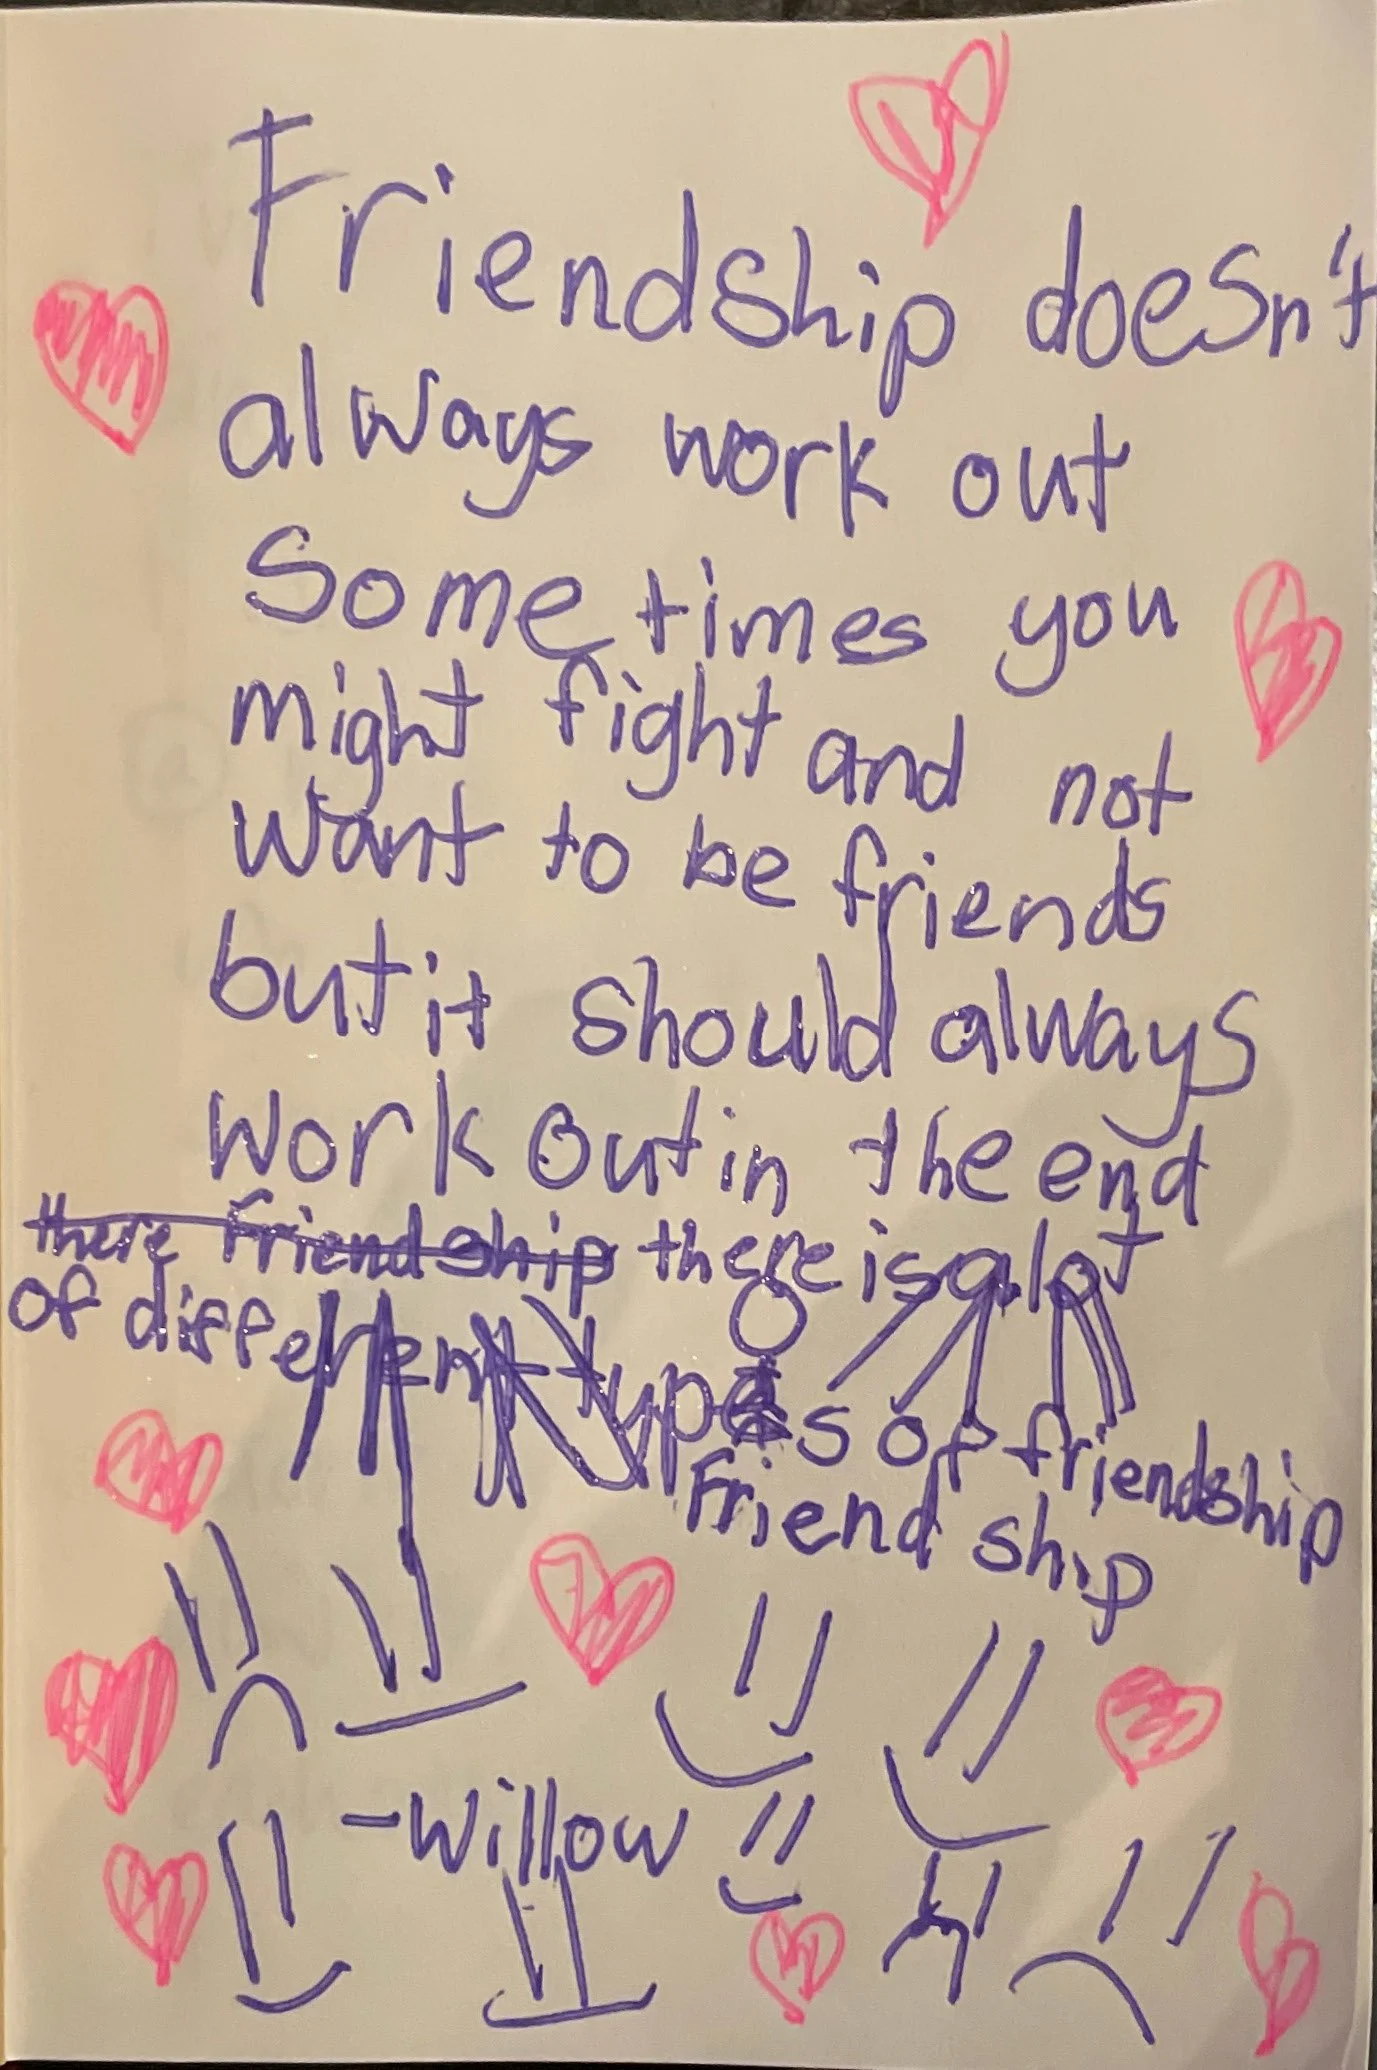 Friendship doesn't
always work out
Some times you
might fight and not
want to be friends
but it should always
work out in the end
there friendship there is a lot
of different types of friendship
Friend ship
-Willow